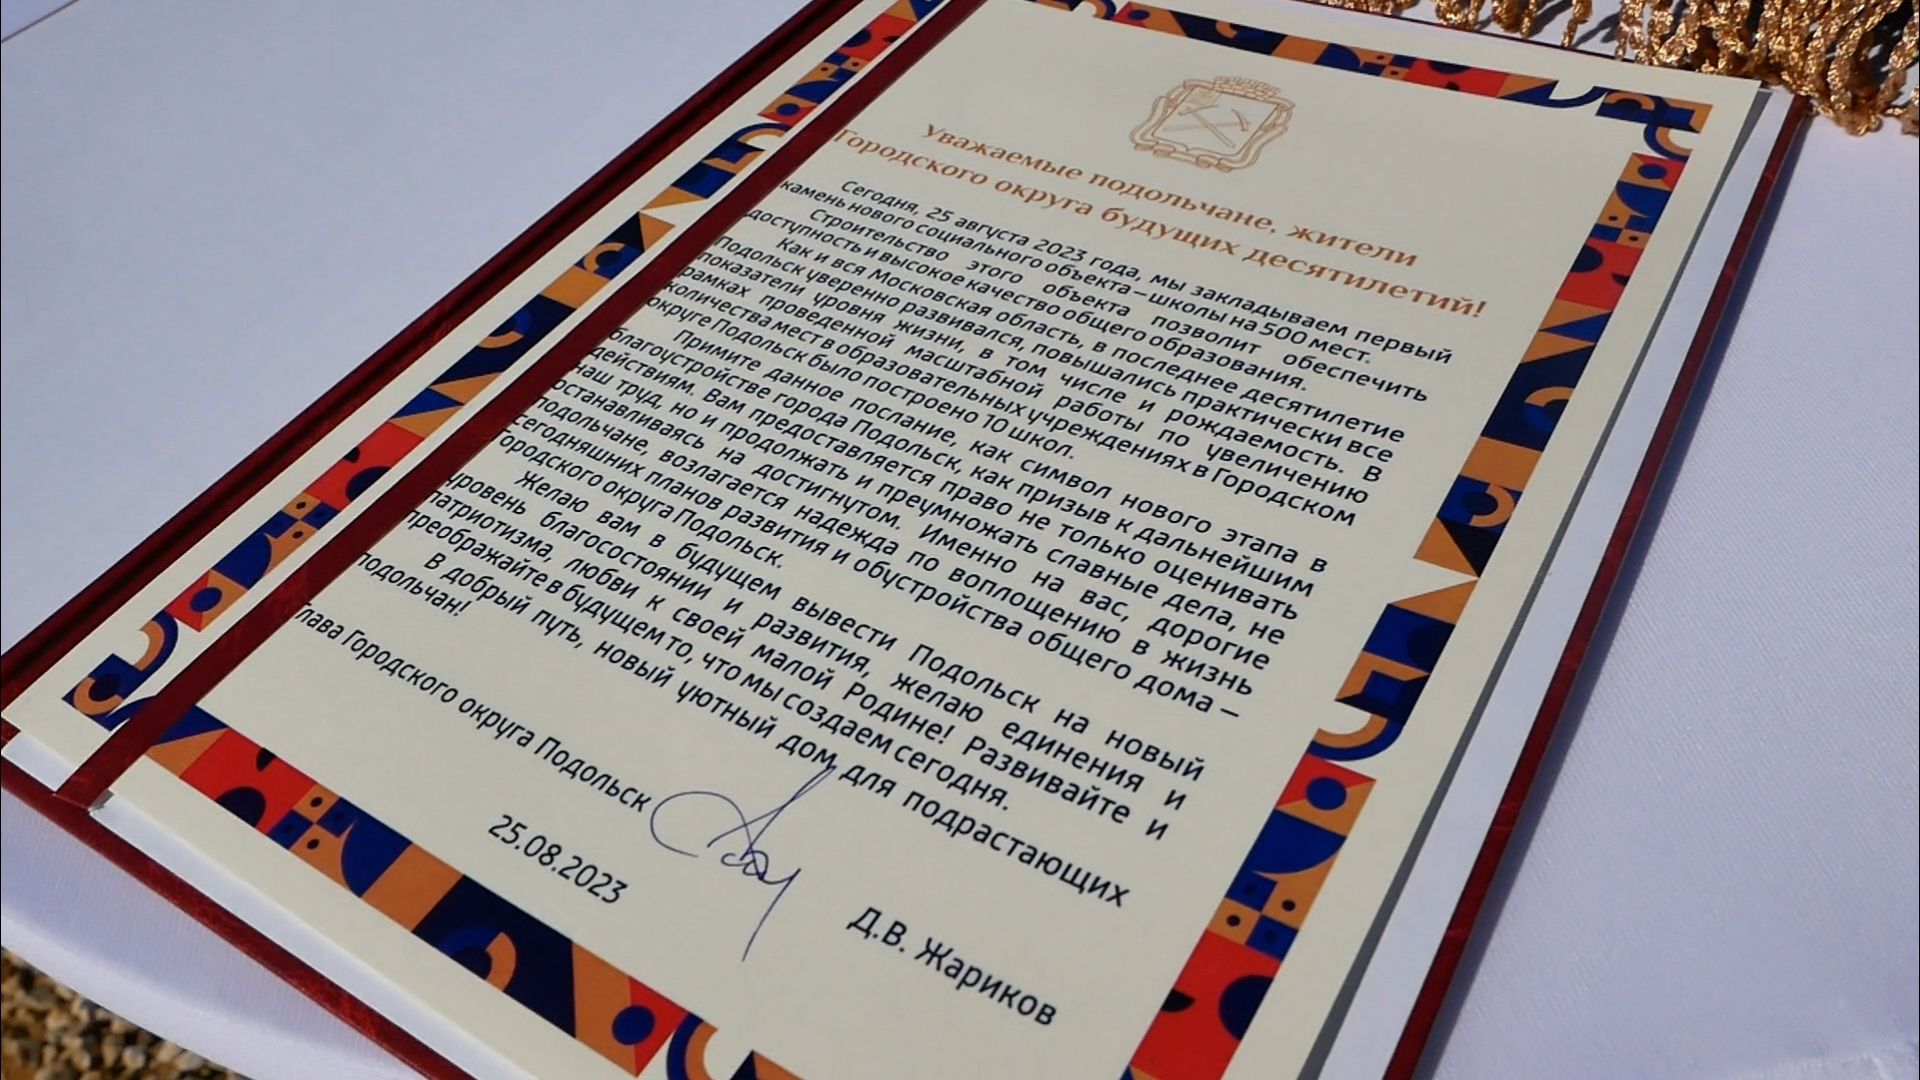 Уважаемые подольчане, жители
Городского округа будущих десятилетий!
Сегодня, 25 августа 2023 года, мы закладываем первый
камень нового социального объекта – школы на 500 мест.
Строительство этого объекта позволит обеспечить
доступность и высокое качество общего образования.
Как и вся Московская область, в последнее десятилетие
Подольск уверенно развивался, повышались практически все
показатели уровня жизни, в том числе и рождаемость. В
рамках проведенной масштабной работы по увеличению
количества мест в образовательных учреждениях в Городском
округе Подольск было построено 10 школ.
Примите данное послание, как символ нового этапа в
благоустройстве города Подольск, как призыв к дальнейшим
действиям. Вам предоставляется право не только оценивать
наш труд, но и продолжать и преумножать славные дела, не
останавливаясь на достигнутом. Именно на вас, дорогие
подольчане, возлагается надежда по воплощению в жизнь
сегодняшних планов развития и обустройства общего дома –
Городского округа Подольск.
Желаю вам в будущем вывести Подольск на новый
уровень благосостояния и развития, желаю единения и
патриотизма, любви к своей малой Родине! Развивайте и
преображайте в будущем то, что мы создаем сегодня.
В добрый путь, новый уютный дом для подрастающих
подольчан!
Глава Городского округа Подольск
Д.В. Жариков
25.08.2023